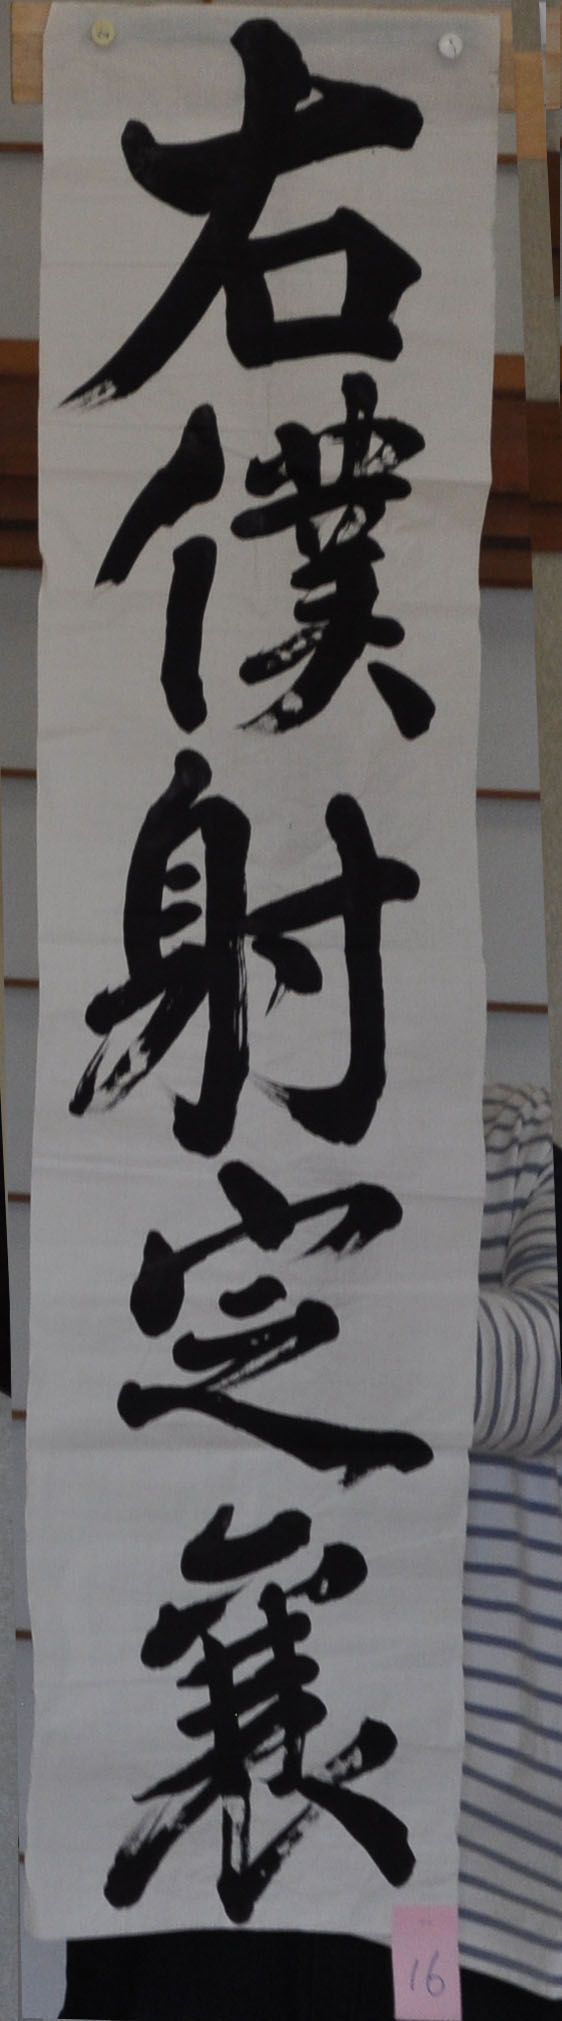 右僕射定襄
16